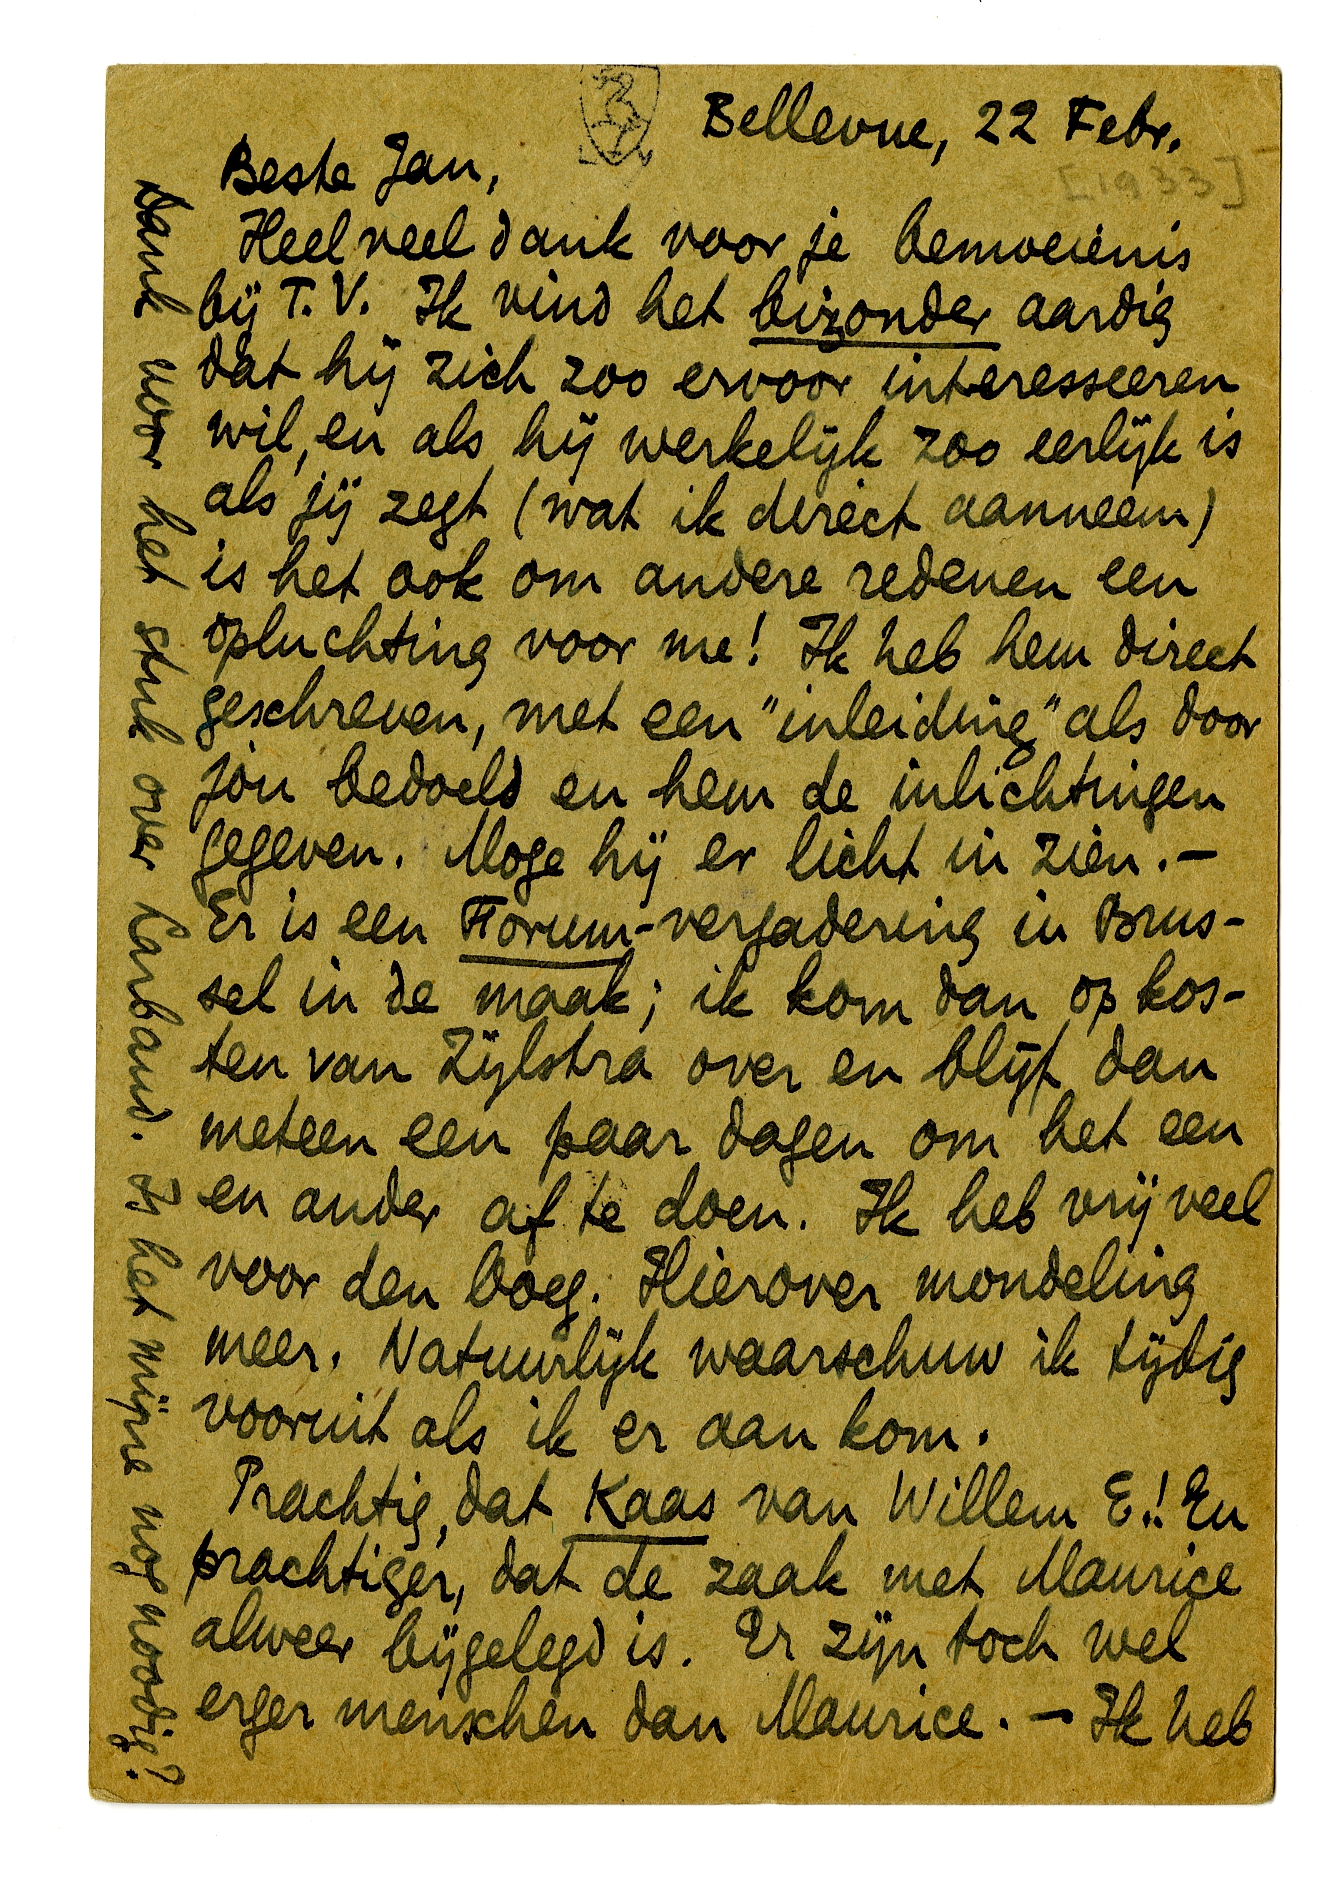 Bellevue, 22 Febr.
[1933]
Beste Jan,
Heel veel dank voor je bemoeienis
bij T.V. Ik vind het bizonder aardig
dat hij zich zoo ervoor interesseeren
wil, en als hij werkelijk zoo eerlijk is
als jij zegt (wat ik direct aanneem)
is het ook om andere redenen een
opluchting voor me! Ik heb hem direct
geschreven, met een "inleiding" als door
jou bedoeld en hem de inlichtingen
gegeven. Moge hij er licht in zien. —
Er is een Forum-vergadering in Brus-
sel in de maak; ik kom dan op kos-
ten van Zijlstra over en blijf dan
meteen een paar dagen om het een
en ander af te doen. Ik heb vrij veel
voor den boeg. Hierover mondeling
meer. Natuurlijk waarschuw ik tijdig
vooruit als ik er aan kom.
Prachtig, dat Kaas van Willem E.! En
prachtiger, dat de zaak met Maurice
alweer bijgelegd is. Er zijn toch wel
erger menschen dan Maurice. — Ik heb
Dank voor het stuk over Larbaud. Is het mijne nog noodig?